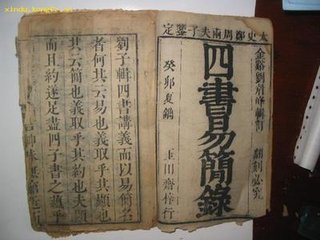 xindu.kongfz.cn
太史鄭周兩夫子鑒定
金谿劉 輯 翻刻必究
四書易簡錄
癸卯夏鐫 玉田齋梓行
劉子輯四書講義而以易簡名
者何其云易也義取乎其顯也
其云簡也義取乎其約也夫顯
而且約遂足盡四子書之蘊乎